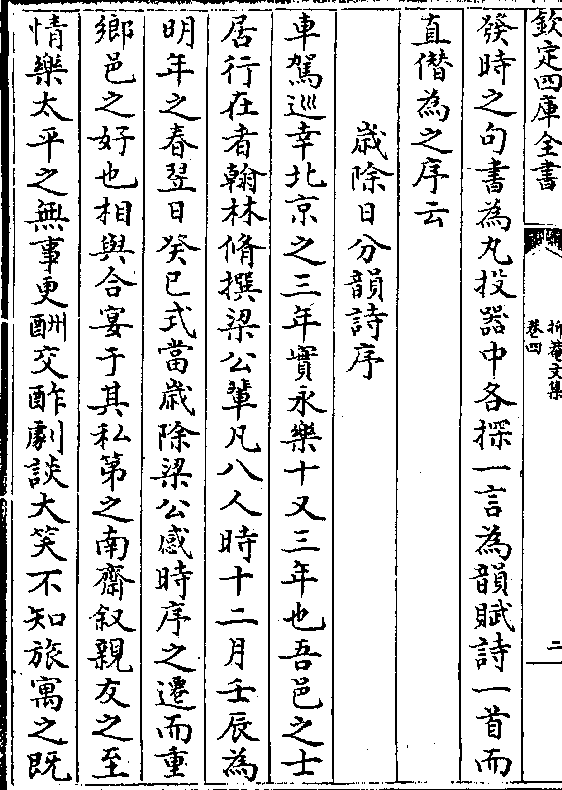 欽定四庫全書
抑菴文集
卷四
二
發時之句書為丸投器中各探一言為韻賦詩一首而
直僭為之序云
歲除日分韻詩序
車駕巡幸北京之三年實永樂十又三年也吾邑之士
居行在者翰林脩撰梁公輩凡八人時十二月壬辰為
明年之春翌日癸巳式當歲除梁公感時序之遷而重
鄉邑之好也相與合宴于其私第之南齋叙親友之至
情樂太平之無事更酬交酢劇談大笑不知旅寓之既